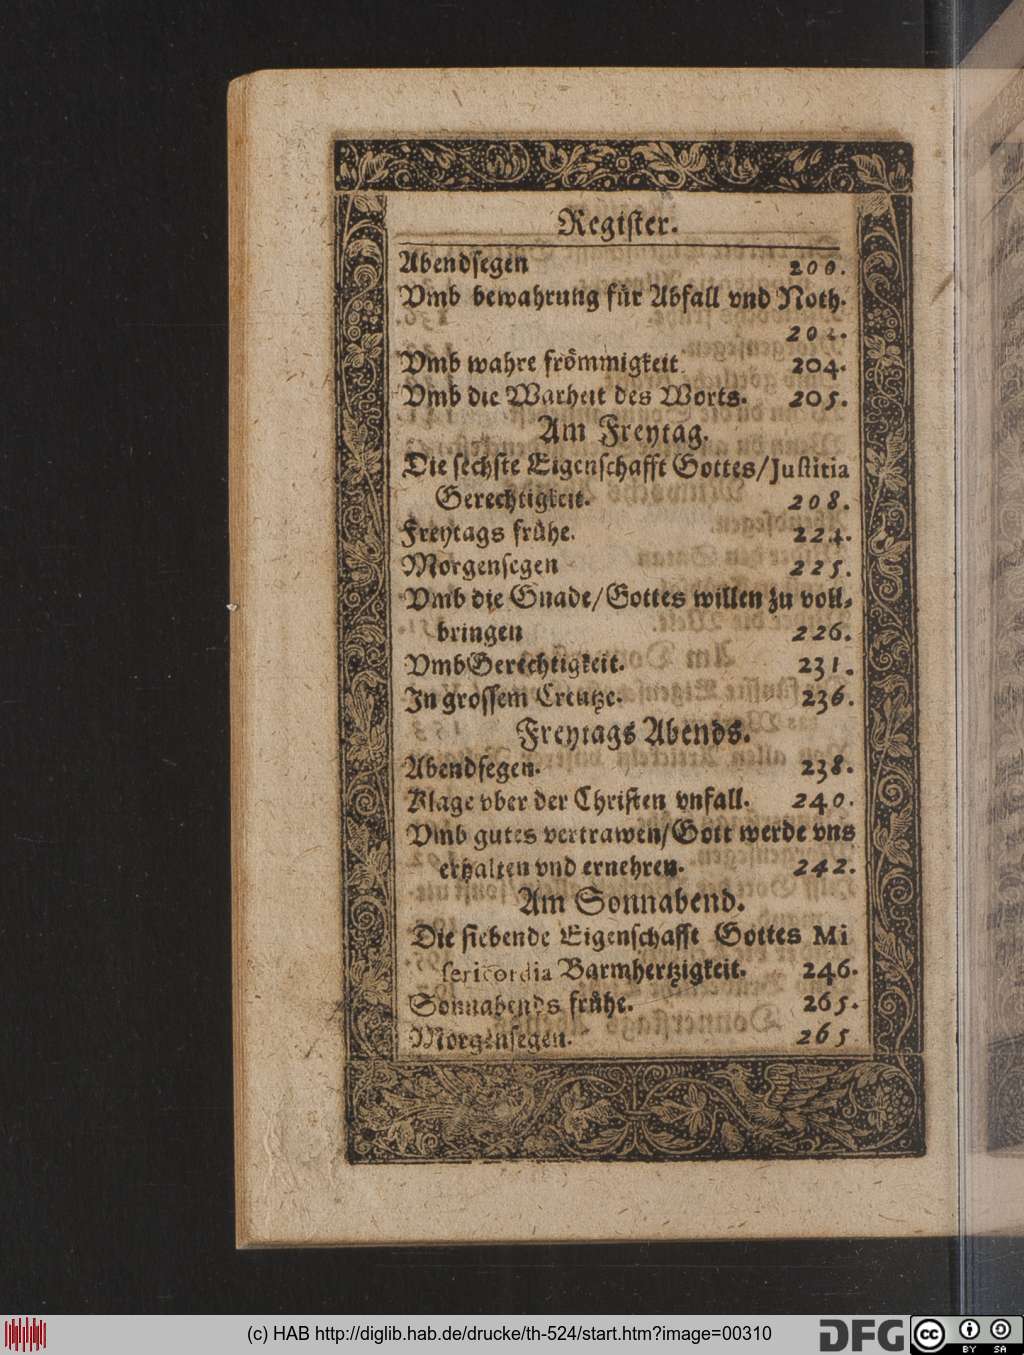 Register.
Abendsegen 200.
Vmb bewahrung für Abfall vnd Noth.
202.
Vmb wahre frömmigkeit 204.
Vmb die Warheit des Worts. 205.
Am Freytag.
Die sechste Eigenschafft Gottes/Justitia
Gerechtigkeit. 208.
Freytags frühe. 224.
Morgensegen 225.
Vmb die Gnade/Gottes willen zu voll-
bringen 226.
Vmb Gerechtigkeit. 231.
In grossem Creutze. 236.
Freytags Abends.
Abendsegen. 238.
Klage vber der Christen vnfall. 240.
Vmb gutes vertrawen/Gott werde vns
erhalten vnd ernehren. 242.
Am Sonnabend.
Die siebende Eigenschafft Gottes Mi
sericordia Barmhertzigkeit. 246.
Sonnabends frühe. 265.
Morgensegen. 265
(c) HAB http://diglib.hab.de/drucke/th-524/start.htm?image=00310
DFG
cc BY SA